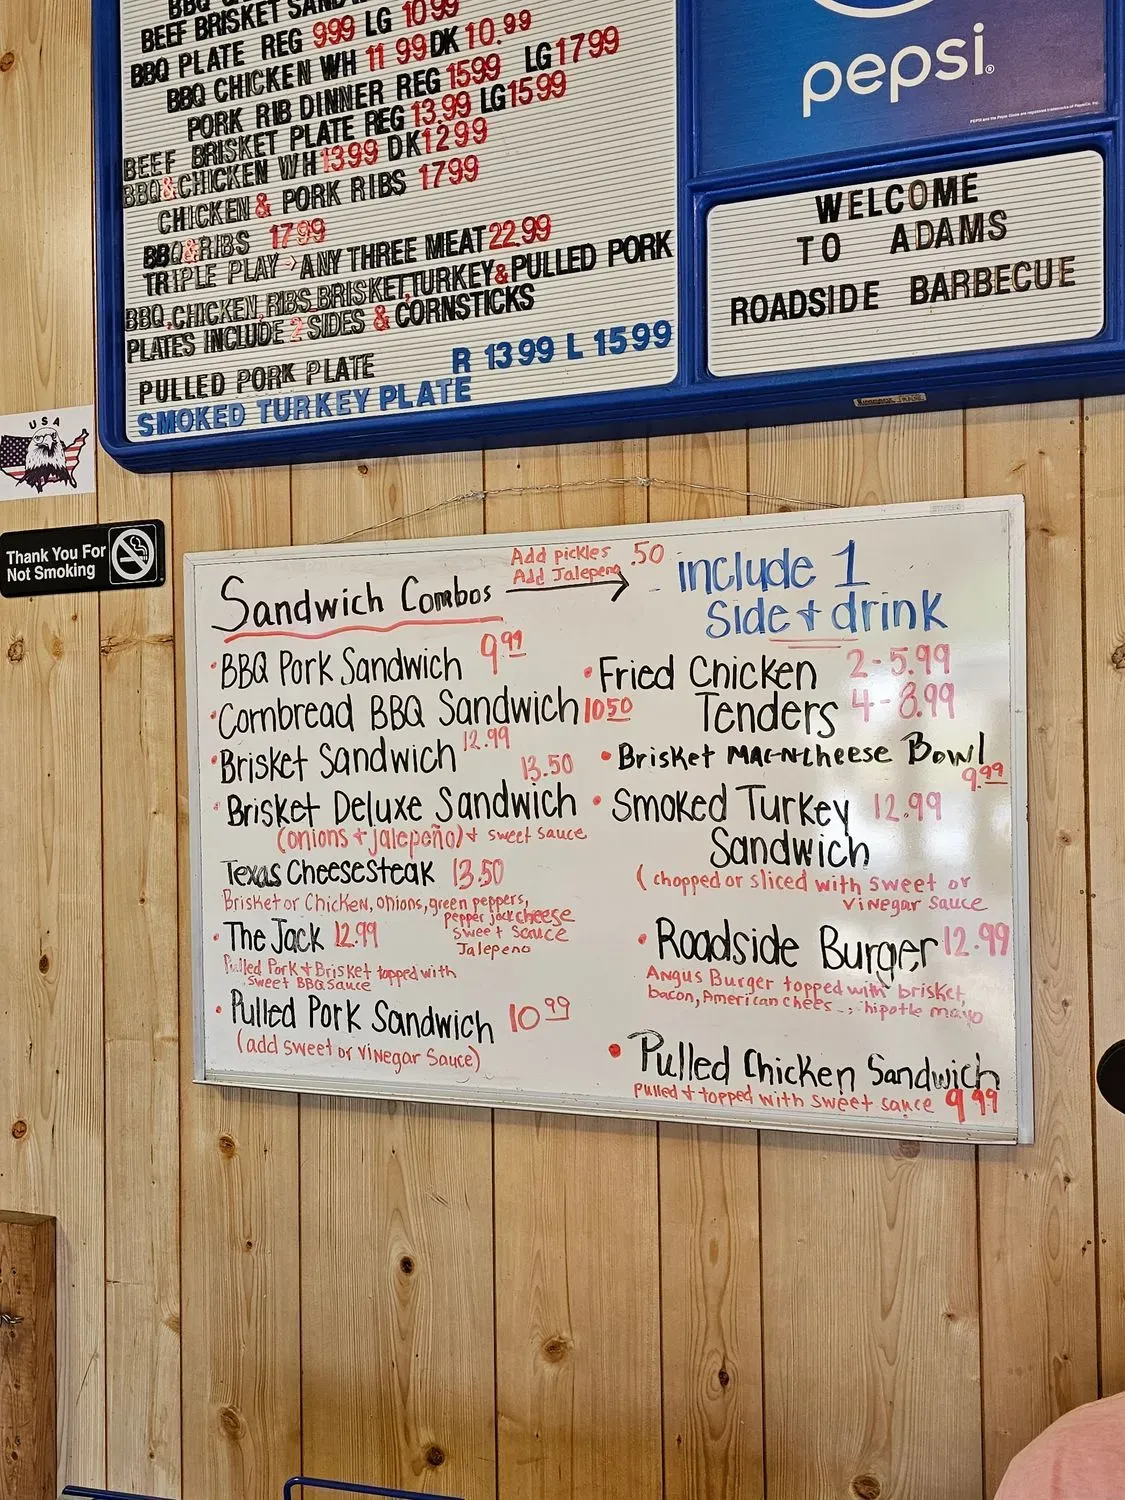 BBQ
BEEF BRISKET
BBQ PLATE REG 999 LG 1099
BBQ CHICKEN WH 11 99 DK 10.99
PORK RIB DINNER REG 1599 LG 1799
BEEF BRISKET PLATE REG 13.99 LG 1599
BBQ & CHICKEN WH 1399 DK 1299
CHICKEN & PORK RIBS 1799
BBQ & RIBS 1799
TRIPLE PLAY ANY THREE MEAT 22.99
BBQ, CHICKEN, RIBS, BRISKET, TURKEY & PULLED PORK
PLATES INCLUDE 2 SIDES & CORNSTICKS
PULLED PORK PLATE R 1399 L 1599
SMOKED TURKEY PLATE
pepsi
WELCOME
TO ADAMS
ROADSIDE BARBECUE
USA
Thank You For
Not Smoking
Sandwich Combos
Add pickles .50
Add Jalepeno
include 1
Side + drink
BBQ Pork Sandwich 9.99
Cornbread BBQ Sandwich 1050
Brisket Sandwich 12.99
Brisket Deluxe Sandwich 13.50
(onions + jalepeño) + sweet sauce
Texas Cheesesteak 13.50
Brisket or Chicken, onions, green peppers,
pepper jack cheese
sweet sauce
Jalepeno
The Jack 12.99
Pulled Pork + Brisket topped with
sweet BBQ sauce
Pulled Pork Sandwich 10 99
(add sweet or vinegar sauce)
Fried Chicken 2 - 5.99
Tenders 4 - 8.99
Brisket Mac-N-Cheese Bowl
9.99
Smoked Turkey 12.99
Sandwich
(chopped or sliced with sweet or
vinegar sauce
Roadside Burger 12.99
Angus Burger topped with brisket,
bacon, American chees chipotle mayo
Pulled Chicken Sandwich
pulled + topped with sweet sauce 9 99